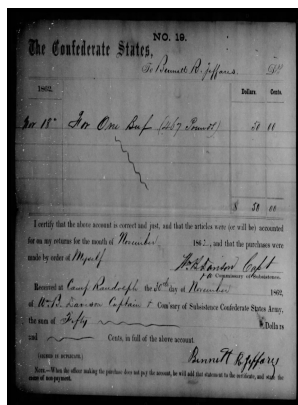 NO. 19.
The Confederate States,
To Bennett R. Jeffares. Dr
1862. Dollars. Cents.
Nov 18th For One Beef (467 Pounds) 50 00
$ 50 00
I certify that the above account is correct and just, and that the articles were (or will be) accounted
for on my returns for the month of November, 1862, and that the purchases were
made by order of Myself
Capt
Commissary of Subsistence.
Received at Camp Randolph the 30th day of November 1862,
of Captain & Com'sary of Subsistence Confederate States Army,
the sum of Fifty Dollars
and Cents, in full of the above account.
(SIGNED IN DUPLICATE.) Bennett R Jeffares
NOTE.—When the officer making the purchase does not pay the account, he will add that statement to the certificate, and state the
cause of non-payment.